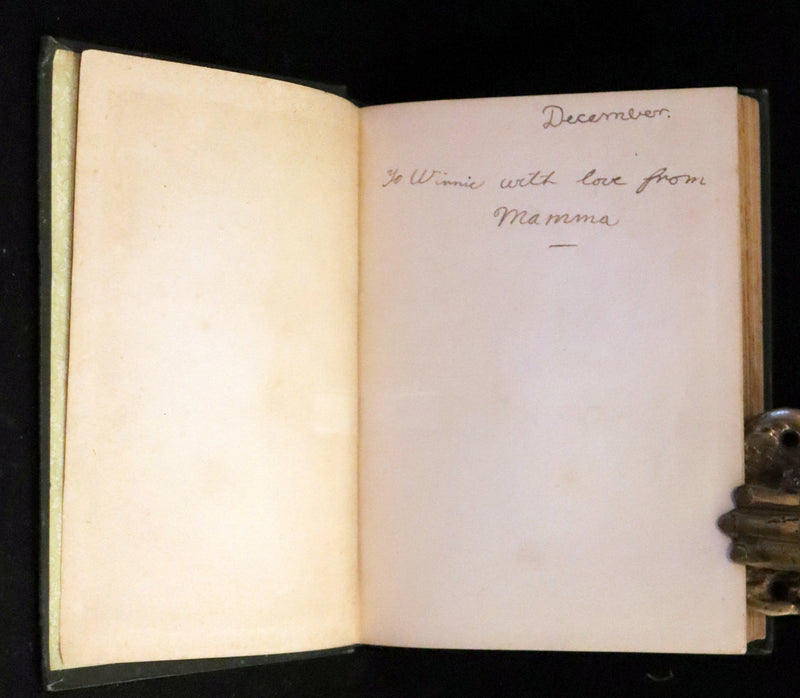 December.
To Winnie with love from
Mamma